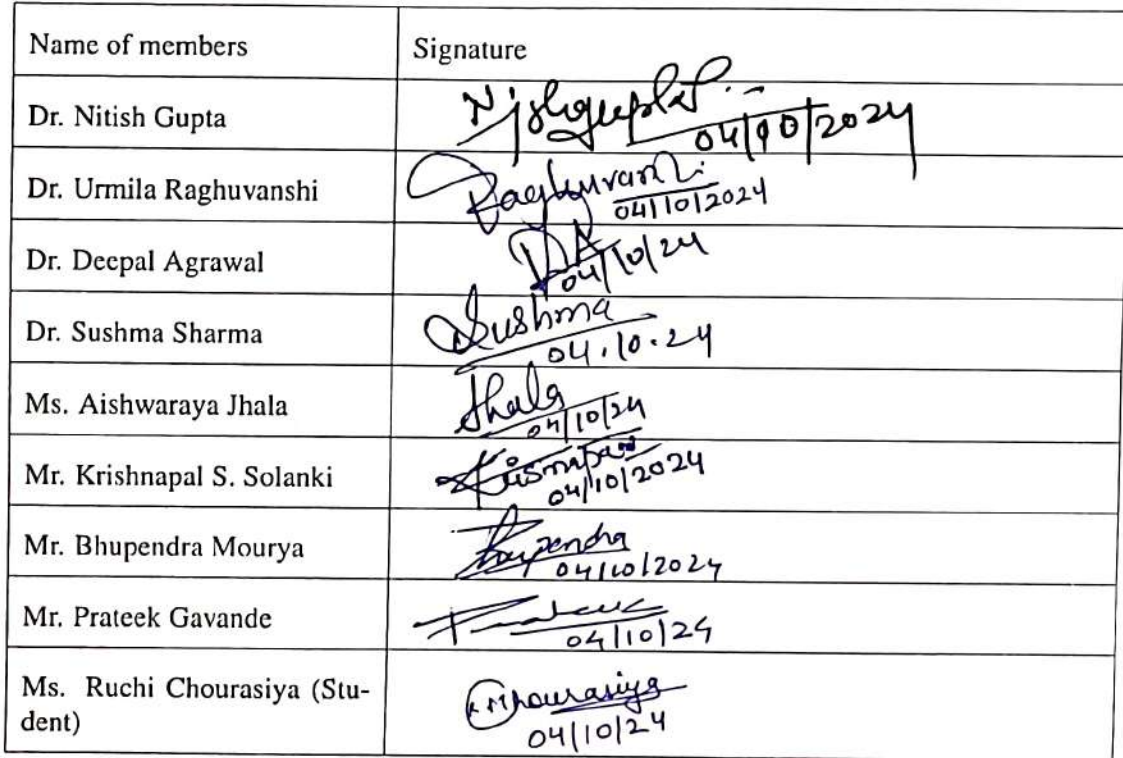 Name of members Signature
Dr. Nitish Gupta Nitishgupta
04/10/2024
Dr. Urmila Raghuvanshi Raghuvanshi
04/10/2024
Dr. Deepal Agrawal DA
04/10/24
Dr. Sushma Sharma Sushma
04.10.24
Ms. Aishwaraya Jhala Jhala
04/10/24
Mr. Krishnapal S. Solanki Krisnapal
04/10/2024
Mr. Bhupendra Mourya Bhupendra
04/10/2024
Mr. Prateek Gavande Prateek
04/10/24
Ms. Ruchi Chourasiya (Stu-
dent)
Chourasiya
04/10/24